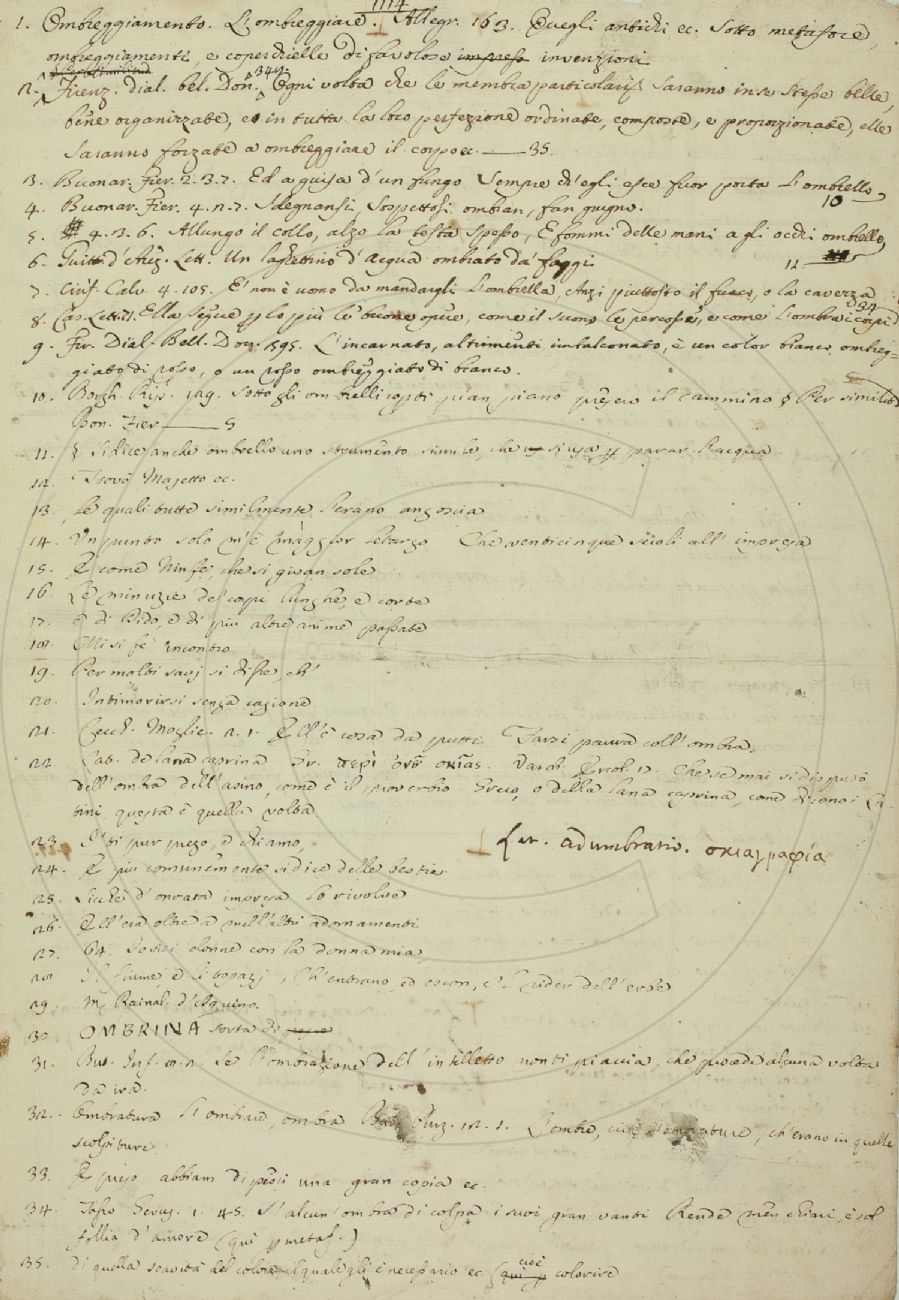 1114
1. Ombreggiamento. L'ombreggiare. Allegr. 163. Quegli antichi ec. sotto metafore,
ombreggiamenti, e coperchielle di favolose invenzioni
2. Firenz. dial. bel. Don. 344. Ogni volta che le membra particolari saranno in se stesse belle,
bene organizzate, e in tutta la loro perfezione ordinate, composte, e proporzionate, elle
saranno forzate a ombreggiare il corpo ec. 35.
3. Buonar. Fier. 2. 3. 7. Ed a guisa d'un fungo Sempre ch'egli esce fuor porta L'ombrello
10
4. Buonar. Fier. 4. 2. 7. Sdegnansi, Sospettosi ombran, fan pugno.
5. 4. 3. 6. Allungo il collo, alzo la testa spesso, E fommi delle mani a gli occhi ombrello,
11
6. Guitt. d'Arez. Lett. Un laghettino d'acqua ombrato da' faggi
7. Ciriff. Calv. 4. 105. E' non è uomo da mandargli L'ombrella, Anzi piuttosto il fuoco, o la cavezza
34
8. Car. Lett. Ella segue p lo più le buone opere, come il suono le percosse, e come l'ombra i corpi
9. Fir. Dial. Bell. Don. 395. L'incarnato, altrimenti imbalconato, è un color bianco ombreg-
giato di rosso, o un rosso ombreggiato di bianco.
10. Borgh. Rip. 129. Sotto gli ombrelli copti pian piano presero il cammino § Per similit.
Bon. Fier 5
11. § Si dice anche ombrello uno strumento simile, che si usa p parar l'acqua
12. Trovò Masetto ec.
13. Le quali tutte similmente l'erano angoscia
14. Un punto solo m'è maggior letargo Che venticinque secoli all'impresa
15. E come Ninfe, che si givan sole
16. Le minuzie de' corpi lunghe, e corte
17. e di Dido, e di più altre anime passate
18. Elli si fe' incontro
19. Per molti savj si disse, ch'
20. Intimorirsi senza cagione
21. Cecch. Moglie. 2. 1. Ell'è cosa da putti Farsi paura coll'ombra.
22. Lat. de lana caprina Gr. περὶ ὄνȣ σκιᾶς. Varch. Ercol. Che se mai si disputò
dell'ombra dell'asino, come è il proverbio Greco, o della lana caprina, come dicono i La-
tini, questa è quella volta
23. I' ti pur prego, e chiamo,
Lat. adumbratio. σκιαγραφία
24. E più comunemente si dice delle bestie
25. Sicchè d'onrata impresa lo rivolve
26. Ell'era oltre a mill'altri adornamenti
27. 64. Sedici donne con la donna mia
28. Il fiume, e li topazj, Ch'entrano, ed escon, e 'l rider dell'erbe
29. M. Rainal. d'Aquino.
30. OMBRINA sorta di pesce
31. But. Inf. Se l'ombrazione dell'intelletto non ti piaccia, che procede alcuna volta
da ira.
32. Ombratura L'ombrare, ombra But. Purg. 12. 1. L'ombre, cioè l'ombrature, ch'erano in quelle
scolpiture
33. E presso abbiam di pesci una gran copia ec.
34. Tasso Gerus. 1. 45. S'alcun'ombra di colpa i suoi gran vanti Rende men chiari, è sol
follia d'amore (qui p metaf.)
35. di quella scurità del colore il quale gli è necessario ec. (cioè colorire